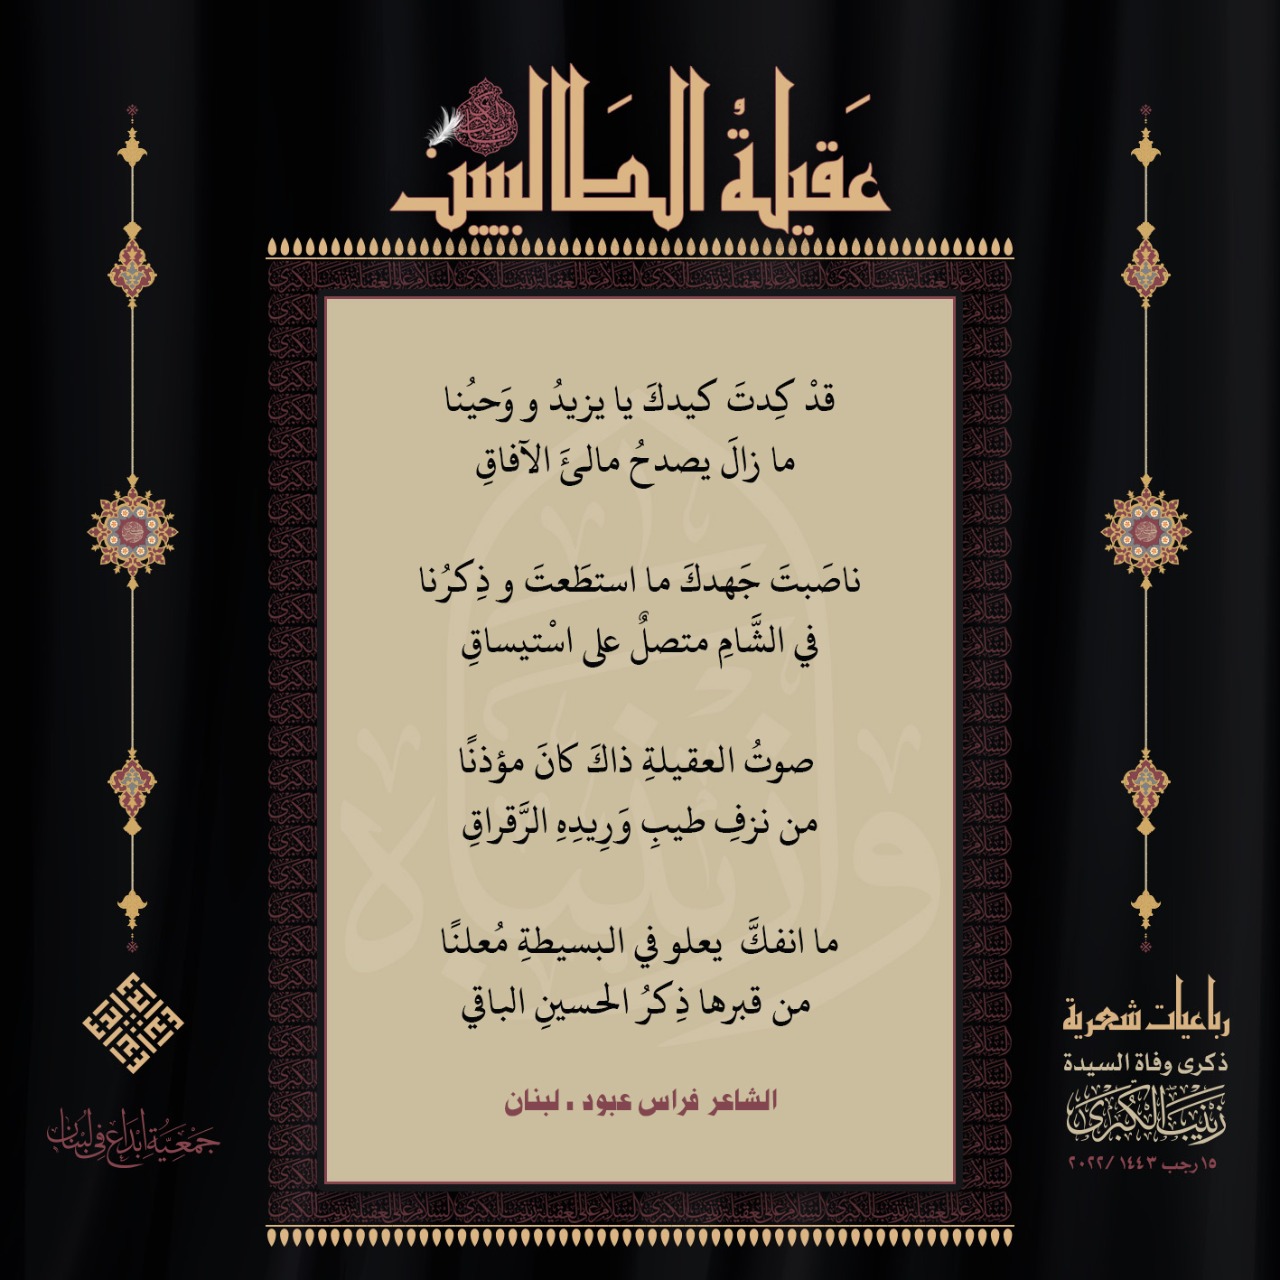 عَقيلةُ الطَالبيين
قدْ كِدتَ كيدكَ يا يزيدُ و وَحيُنا
ما زالَ يصدحُ مالئَ الآفاقِ
ناصَبتَ جَهدكَ ما استطَعتَ و ذِكرُنا
في الشَّامِ متصلٌ على اسْتيساقِ
صوتُ العقيلةِ ذاكَ كانَ مؤذنًا
من نزفِ طيبِ وَرِيدِهِ الرَّقراقِ
ما انفكَّ يعلو في البسيطةِ مُعلنًا
من قبرها ذِكرُ الحسينِ الباقي
الشاعر فراس عبود . لبنان
رباعيات شعرية
ذكرى وفاة السيدة
زَيْنَبَ الكُبْرَىٰ
١٥ رجب ١٤٤٣ /٢٠٢٢
جَمْعِيَّةُ إبْدَاع فِي لُبْنَان